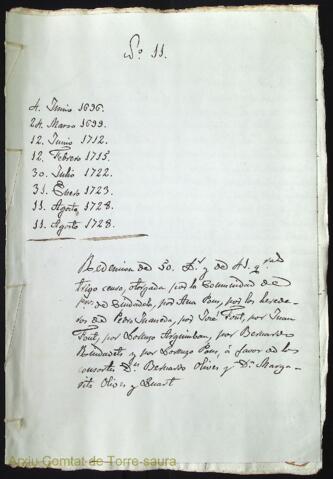 Nº 11.
4. Junio 1696.
24. Marzo 1699.
12. Junio 1712.
12. Febrero 1715.
30. Julio 1722.
31. Enero 1723.
11. Agosto 1728.
11. Agosto 1728.
Redencion de 50. y de
trigo censo, otorgada por la Comunidad de
de Ciudadela, por Ana Pons, por los herede-
ros de Pedro Juaneda, por José Font, por Juan
Font, por Lorenzo por Bernardo
y por Lorenzo Pons, á favor de los
consortes Dn. Bernardo Olives y Dª. Marga-
rita Olives y Squart
Arxiu Comtat de Torre-saura